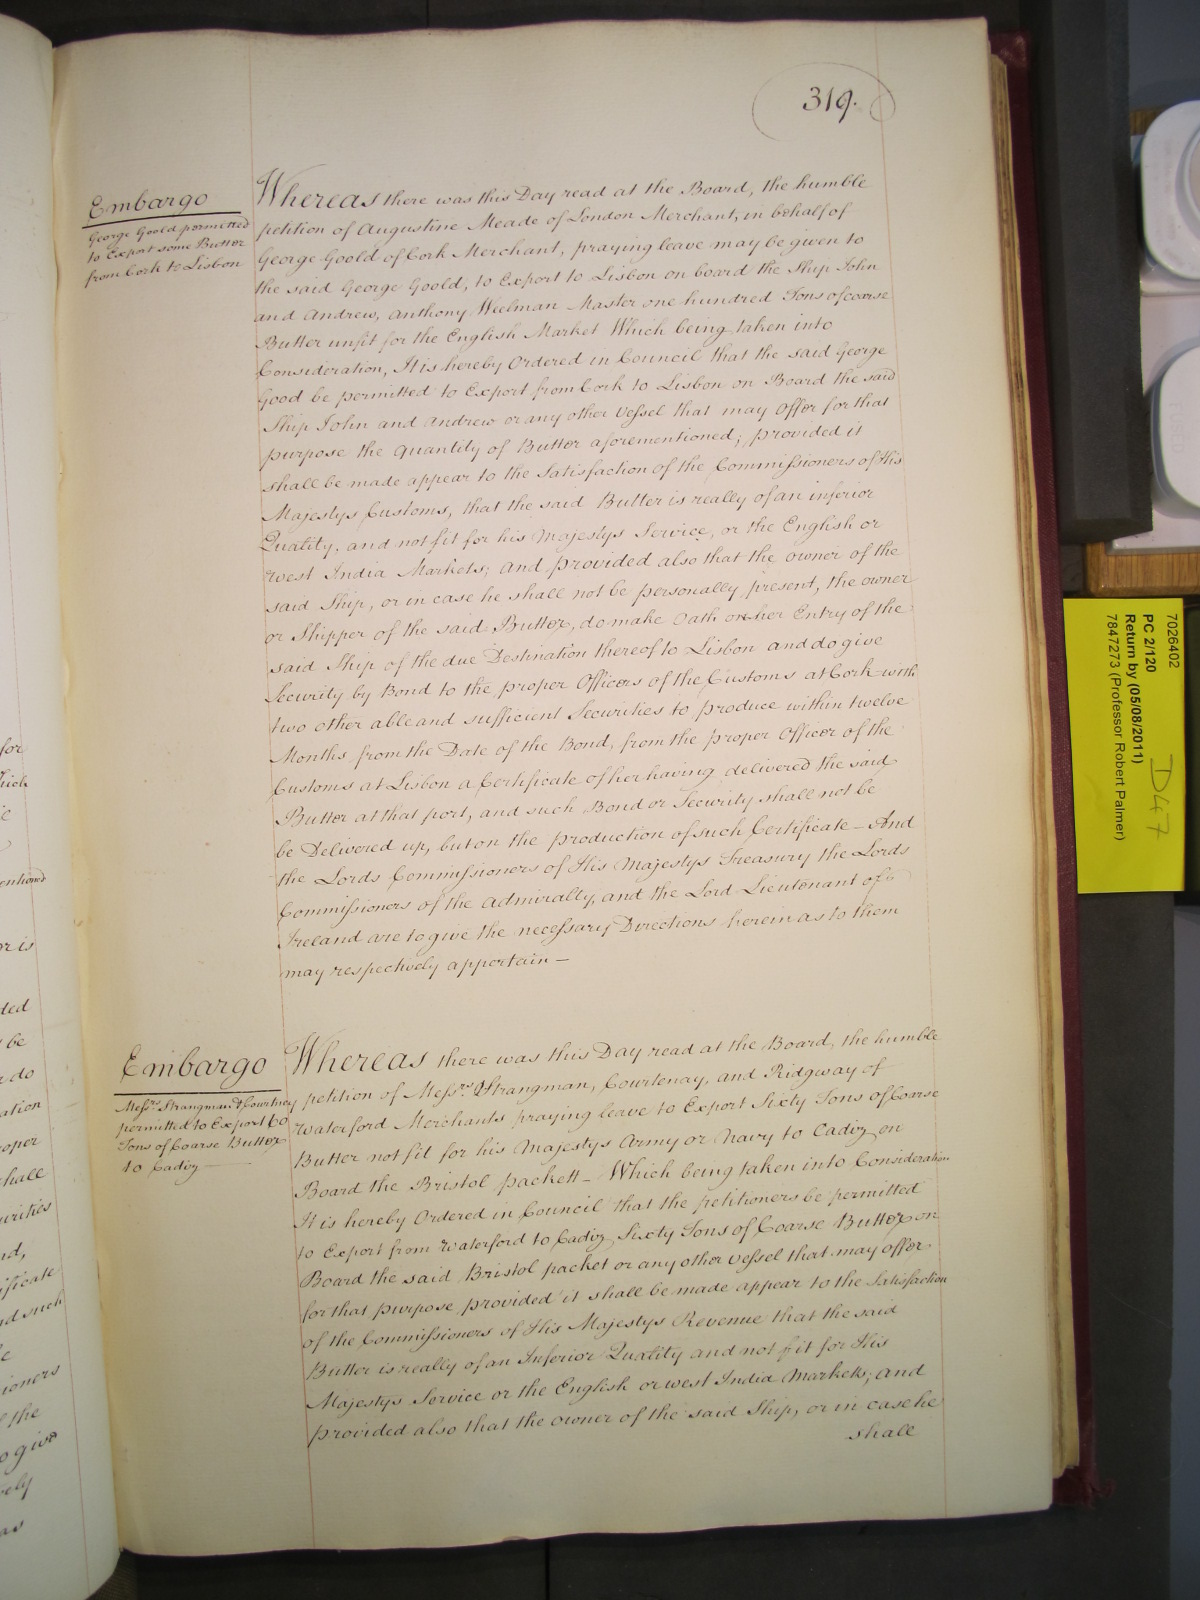 319.
Embargo
George Goold permitted
to Export some Butter
from Cork to Lisbon
Whereas there was this Day read at the Board, the humble
petition of Augustine Meade of London Merchant, in behalf of
George Goold of Cork Merchant, praying leave may be given to
the said George Goold, to Export to Lisbon on board the Ship John
and Andrew, Anthony Weelman Master one hundred Tons of coarse
Butter unfit for the English Market Which being taken into
Consideration, It is hereby Ordered in Council that the said George
Good be permitted to Export from Cork to Lisbon on Board the said
Ship John and Andrew or any other Vessel that may Offer for that
purpose the Quantity of Butter aforementioned; provided it
shall be made appear to the Satisfaction of the Commissioners of His
Majestys Customs, that the said Butter is really of an inferior
Quality, and not fit for his Majestys Service, or the English or
West India Markets; and provided also that the owner of the
said Ship, or in case he shall not be personally present, the owner
or Shipper of the said Butter, do make Oath on her Entry of the
said Ship of the due Destination thereof to Lisbon and do give
Security by Bond to the proper Officers of the Customs at Cork with
two other able and sufficient Securities to produce within twelve
Months from the Date of the Bond, from the proper Officer of the
Customs at Lisbon a Certificate of her having delivered the said
Butter at that port, and such Bond or Security shall not be
be Delivered up, but on the production of such Certificate - And
the Lords Commissioners of His Majestys Treasury the Lords
Commissioners of the Admiralty, and the Lord Lieutenant of
Ireland are to give the necessary Directions herein as to them
may respectively appertain -
Embargo
Messrs. Strangman & Courtney
permitted to Export 60
Tons of Coarse Butter
to Cadiz
Whereas there was this Day read at the Board, the humble
petition of Messrs. Strangman, Courtenay, and Ridgway of
Waterford Merchants praying leave to Export Sixty Tons of Coarse
Butter not fit for his Majestys Army or Navy to Cadiz on
Board the Bristol packett - Which being taken into Consideration
It is hereby Ordered in Council that the petitioners be permitted
to Export from Waterford to Cadiz Sixty Tons of Coarse Butter on
Board the said Bristol packet or any other vessel that may offer
for that purpose provided it shall be made appear to the Satisfaction
of the Commissioners of His Majestys Revenue that the said
Butter is really of an Inferior Quality and not fit for His
Majestys Service or the English or West India Markets; and
provided also that the owner of the said Ship, or in case he
shall
7026402
PC 2/120
Return by (05/08/2011)
7847273 (Professor Robert Palmer)
D47